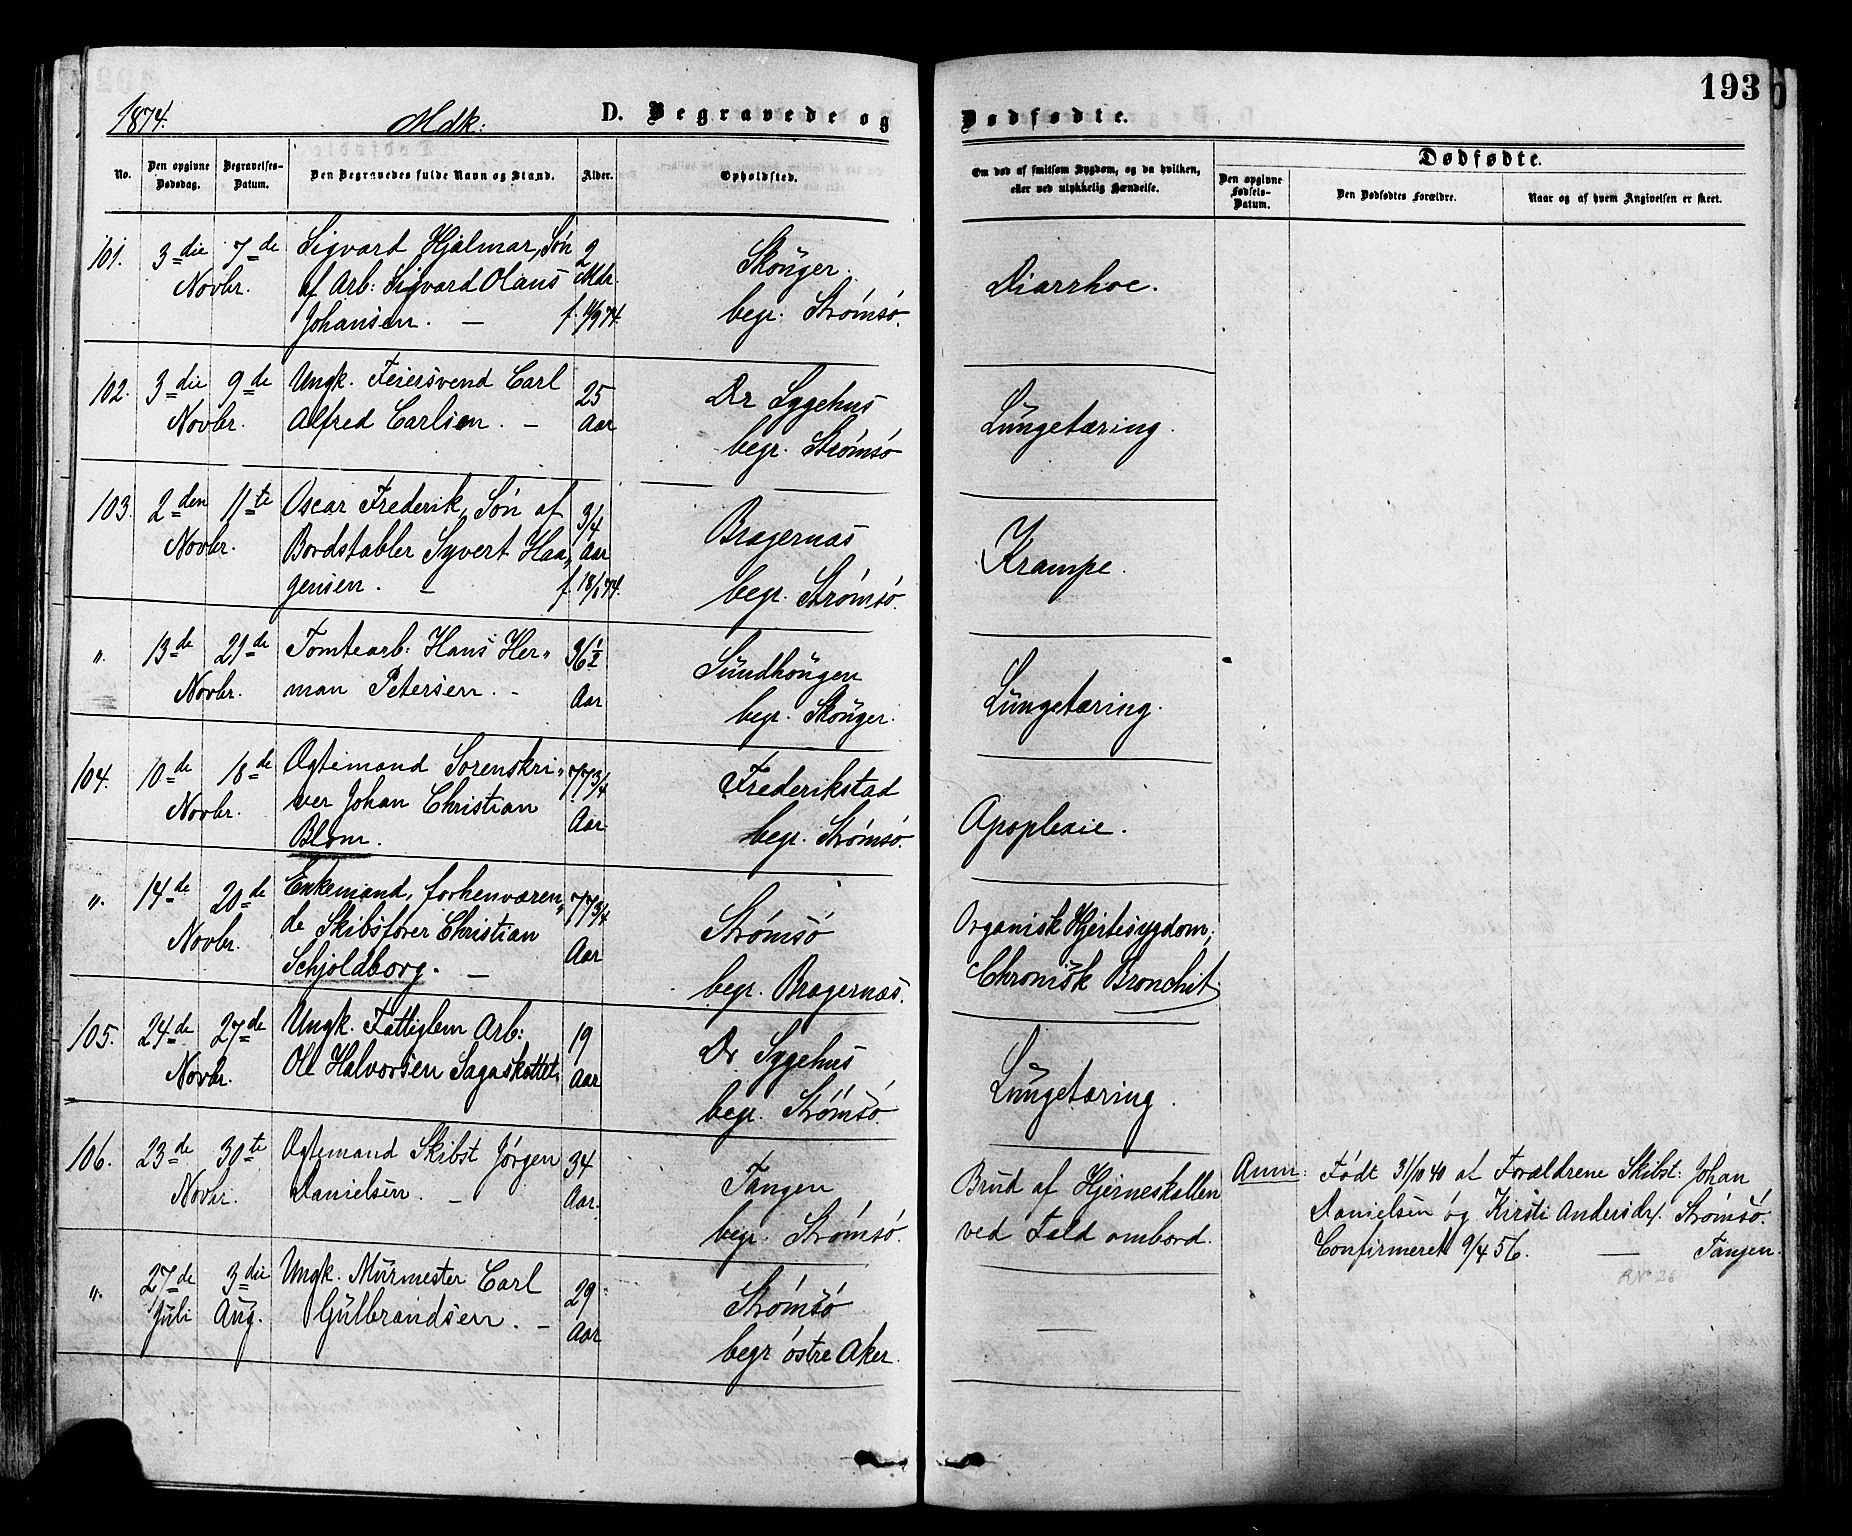 193
1874.
Mdk:
D. Begravede og Dødfødte.
No.
Den opgivne Dødsdag.
Begravelses-Datum.
Den Begravedes fulde Navn og Stand.
Alder.
Opholdsted.
Om død af smitsom Sygdom, og da hvilken,
eller ved ulykkelig Hændelse.
Dødfødte.
Den opgivne Fødsels-Datum.
Den Dødfødtes Forældre.
Naar og af hvem Angivelsen er skeet.
101. 3die 7de Sigvard Hjalmar, Søn 2 Skouger.
Novbr. af Arb: Sigvard Olaus Mdr. Diarrhoe.
Johansen. — f. 11/9 74. begr. Strømsø.
102. 3die 9de Ungk. Feiersvend Carl 25 Dr Sygehus
Novbr. Alfred Carlsen. — Aar Lungetæring.
begr. Strømsø
103. 2den 11te Oscar Frederik, Søn af 3/4 Bragernæs
Novbr. Bordstabler Syvert Haa- Aar Krampe.
gensen. — f. 18/1 74. begr. Strømsø.
". 13de 21de Tomtearb: Hans Her- 36½ Sundhougen
Novbr. man Petersen. - Aar Lungetæring.
begr. Skouger.
104. 10de 18de Ogtemand Sorenskri- 77 3/4 Frederikstad
Novbr. ver Johan Christian Aar Apoplexie.
Blom. begr. Strømsø.
". 14de 20de Enkemand, forhenværen- 77 3/4 Strømsø Organisk Hjertesygdom;
Novbr. de Skibsfører Christian Aar Chronisk Bronchit.
Schjoldborg. — begr. Bragernæs.
105. 24de 27de Ungk. Fattiglem Arb: 19 Dr. Sygehus
Novbr. Ole Halvorsen Sagaskottet. Aar Lungetæring.
begr. Strømsø.
106. 23de 30te Ogtemand Skibst Jørgen 34 Tangen Brud af Hjerneskallen
Novbr. Danielsen. — Aar. begr. Strømsø. ved Fald ombord.
Anm: Født 31/10 40 af Forældrene Skibst: Johan
Danielsen og Kirsti Andersdr. Strømsø.
Confirmeret 9/4 56. — Tangen.
". 27de 3die Ungk. Murmester Carl 29 Strømsø
Juli Aug. Gulbrandsen. — Aar —
begr østre Aker.